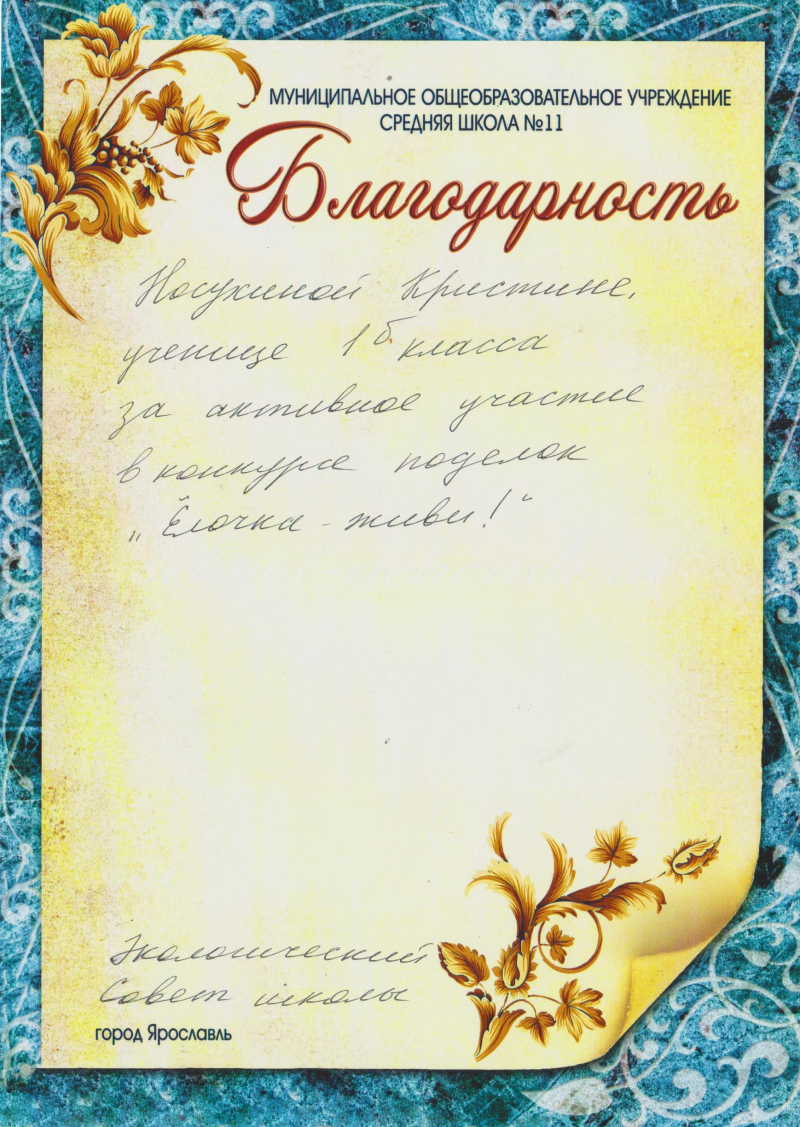 МУНИЦИПАЛЬНОЕ ОБЩЕОБРАЗОВАТЕЛЬНОЕ УЧРЕЖДЕНИЕ
СРЕДНЯЯ ШКОЛА №11
Благодарность
Носухиной Кристине,
ученице 1б класса
за активное участие
в конкурсе поделок
„Ёлочка - живи!“
Экологический
Совет школы
город Ярославль